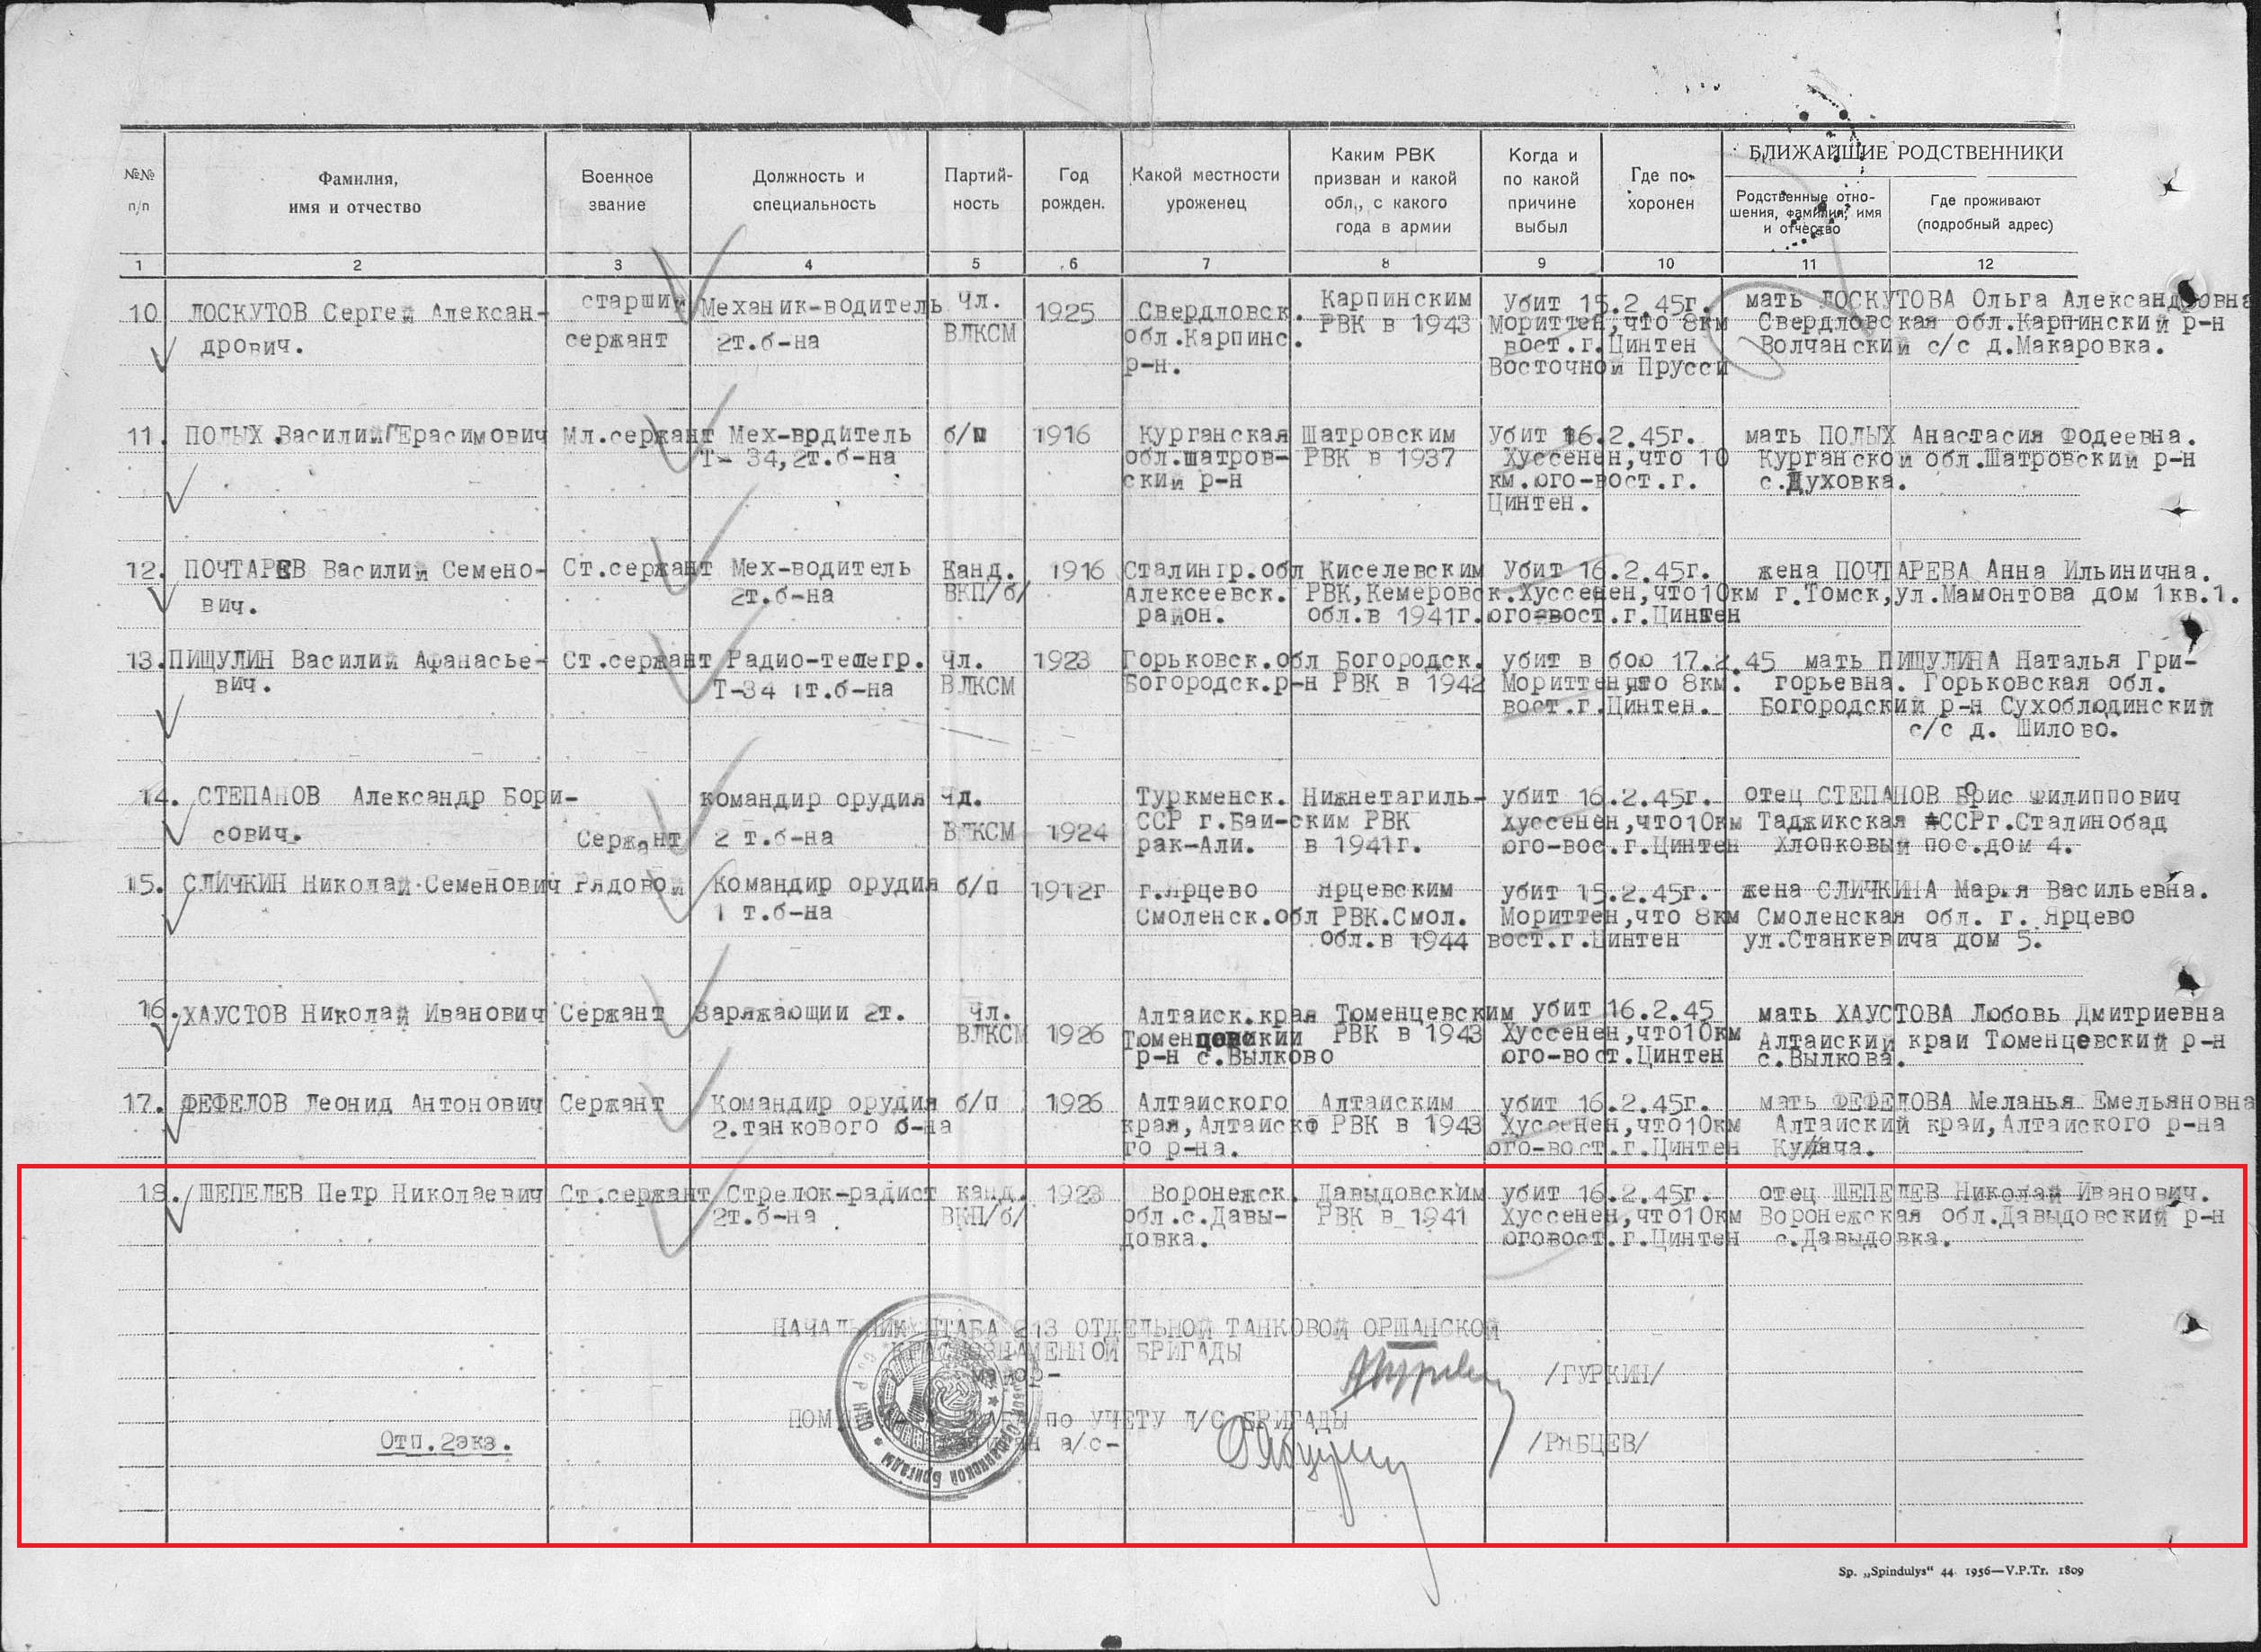 №№ п/п
Фамилия, имя и отчество
Военное звание
Должность и специальность
Партий-ность
Год рожден.
Какой местности уроженец
Каким РВК призван и какой обл., с какого года в армии
Когда и по какой причине выбыл
Где по-хоронен
БЛИЖАЙШИЕ РОДСТВЕННИКИ
Родственные отно-шения, фамилия, имя и отчество
Где проживают (подробный адрес)
1 2 3 4 5 6 7 8 9 10 11 12
10 ЛОСКУТОВ Сергей Алексан- старший Механик-водитель Чл. 1925 Свердловск. Карпинским Убит 15.2.45г. мать ЛОСКУТОВА Ольга Александровна
дрович. сержант 2т.б-на ВЛКСМ обл.Карпинс. РВК в 1943 Мориттен,что 8км Свердловская обл.Карпинский р-н
р-н. вост.г.Цинтен Волчанский с/с д.Макаровка.
Восточной Прусси
11. ПОЛЫХ Василий Герасимович Мл.сержант Мех-врдитель б/п 1916 Курганская Шатровским Убит 16.2.45г. мать ПОЛЫХ Анастасия Фодеевна.
Т-34,2т.б-на обл.шатров- РВК в 1937 Хуссенен,что 10 Курганской обл.Шатровский р-н
ский р-н км.юго-вост.г. с.Духовка.
Цинтен.
12. ПОЧТАРЕВ Василий Семено- Ст.сержант Мех-водитель Канд. 1916 Сталингр.обл Киселевским Убит 16.2.45г. жена ПОЧТАРЕВА Анна Ильинична.
вич. 2т.б-на ВКП/б/ Алексеевск. РВК,Кемеровск. Хуссенен,что10км г.Томск,ул.Мамонтова дом 1кв.1.
район. обл.в 1941г. юго-вост.г.Цинтен
13. ПИЩУЛИН Василий Афанасье- Ст.сержант Радио-телегр. Чл. 1923 Горьковск.обл Богородск. убит в бою 17.2.45 мать ПИЩУЛИНА Наталья Гри-
вич. Т-34 1т.б-на ВЛКСМ Богородск.р-н РВК в 1942 Мориттен что 8км. горьевна. Горьковская обл.
вост.г.Цинтен. Богородский р-н Сухоблюдинский
с/с д. Шилово.
14. СТЕПАНОВ Александр Бори- командир орудия Чл. Туркменск. Нижнетагиль- убит 16.2.45г. отец СТЕПАНОВ Борис Филиппович
сович. Сержант 2 т.б-на ВЛКСМ 1924 ССР г.Баи- ским РВК Хуссенен,что10км Таджикская ССРг.Сталинобад
рак-Али. в 1941г. юго-вос.г.Цинтен Хлопковый пос.дом 4.
15. СЛИЧКИН Николай Семенович Рядовой Командир орудия б/п 1912г г.Ярцево Ярцевским убит 15.2.45г. жена СЛИЧКИНА Марья Васильевна.
1 т.б-на Смоленск.обл РВК.Смол. Мориттен,что 8км Смоленская обл. г. Ярцево
обл.в 1944 вост.г.Цинтен ул.Станкевича дом 5.
16. ХАУСТОВ Николай Иванович Сержант Заряжающии 2т. Чл. Алтайск.края Тюменцевским убит 16.2.45 мать ХАУСТОВА Любовь Дмитриевна
ВЛКСМ 1926 РВК в 1943 Хуссенен,что10км Алтайский край Тюменцевский р-н
р-н с.Вылково юго-вост.Цинтен с.Вылкова.
17. ФЕФЕЛОВ Леонид Антонович Сержант Командир орудия б/п 1926 Алтайского Алтайским убит 16.2.45г. мать ФЕФЕЛОВА Меланья Емельяновна
2.танкового б-на края,Алтайско РВК в 1943 Хуссенен,что10км Алтайский край,Алтайского р-на
го р-на. юго-вост.г.Цинтен
18. ШЕПЕЛЕВ Петр Николаевич Ст.сержант Стрелок-радист канд. 1923 Воронежск. Давыдовским убит 16.2.45г. отец ШЕПЕЛЕВ Николай Иванович.
2т.б-на ВКП/б/ обл.с.Давы- РВК в 1941 Хуссенен,что10км Воронежская обл.Давыдовский р-н
довка. юговост.г.Цинтен с.Давыдовка.
НАЧАЛЬНИК ШТАБА 213 ОТДЕЛЬНОЙ ТАНКОВОЙ ОРШАНСКОЙ
КРАСНОЗНАМЕННОЙ БРИГАДЫ
майор- /ГУРКИН/
ПОМ по УЧЕТУ Л/С БРИГАДЫ
Отп.2экз. капитан а/с- /РЯБЦЕВ/
Sp. „Spindulys“ 44 1956—V.P.Tr. 1809